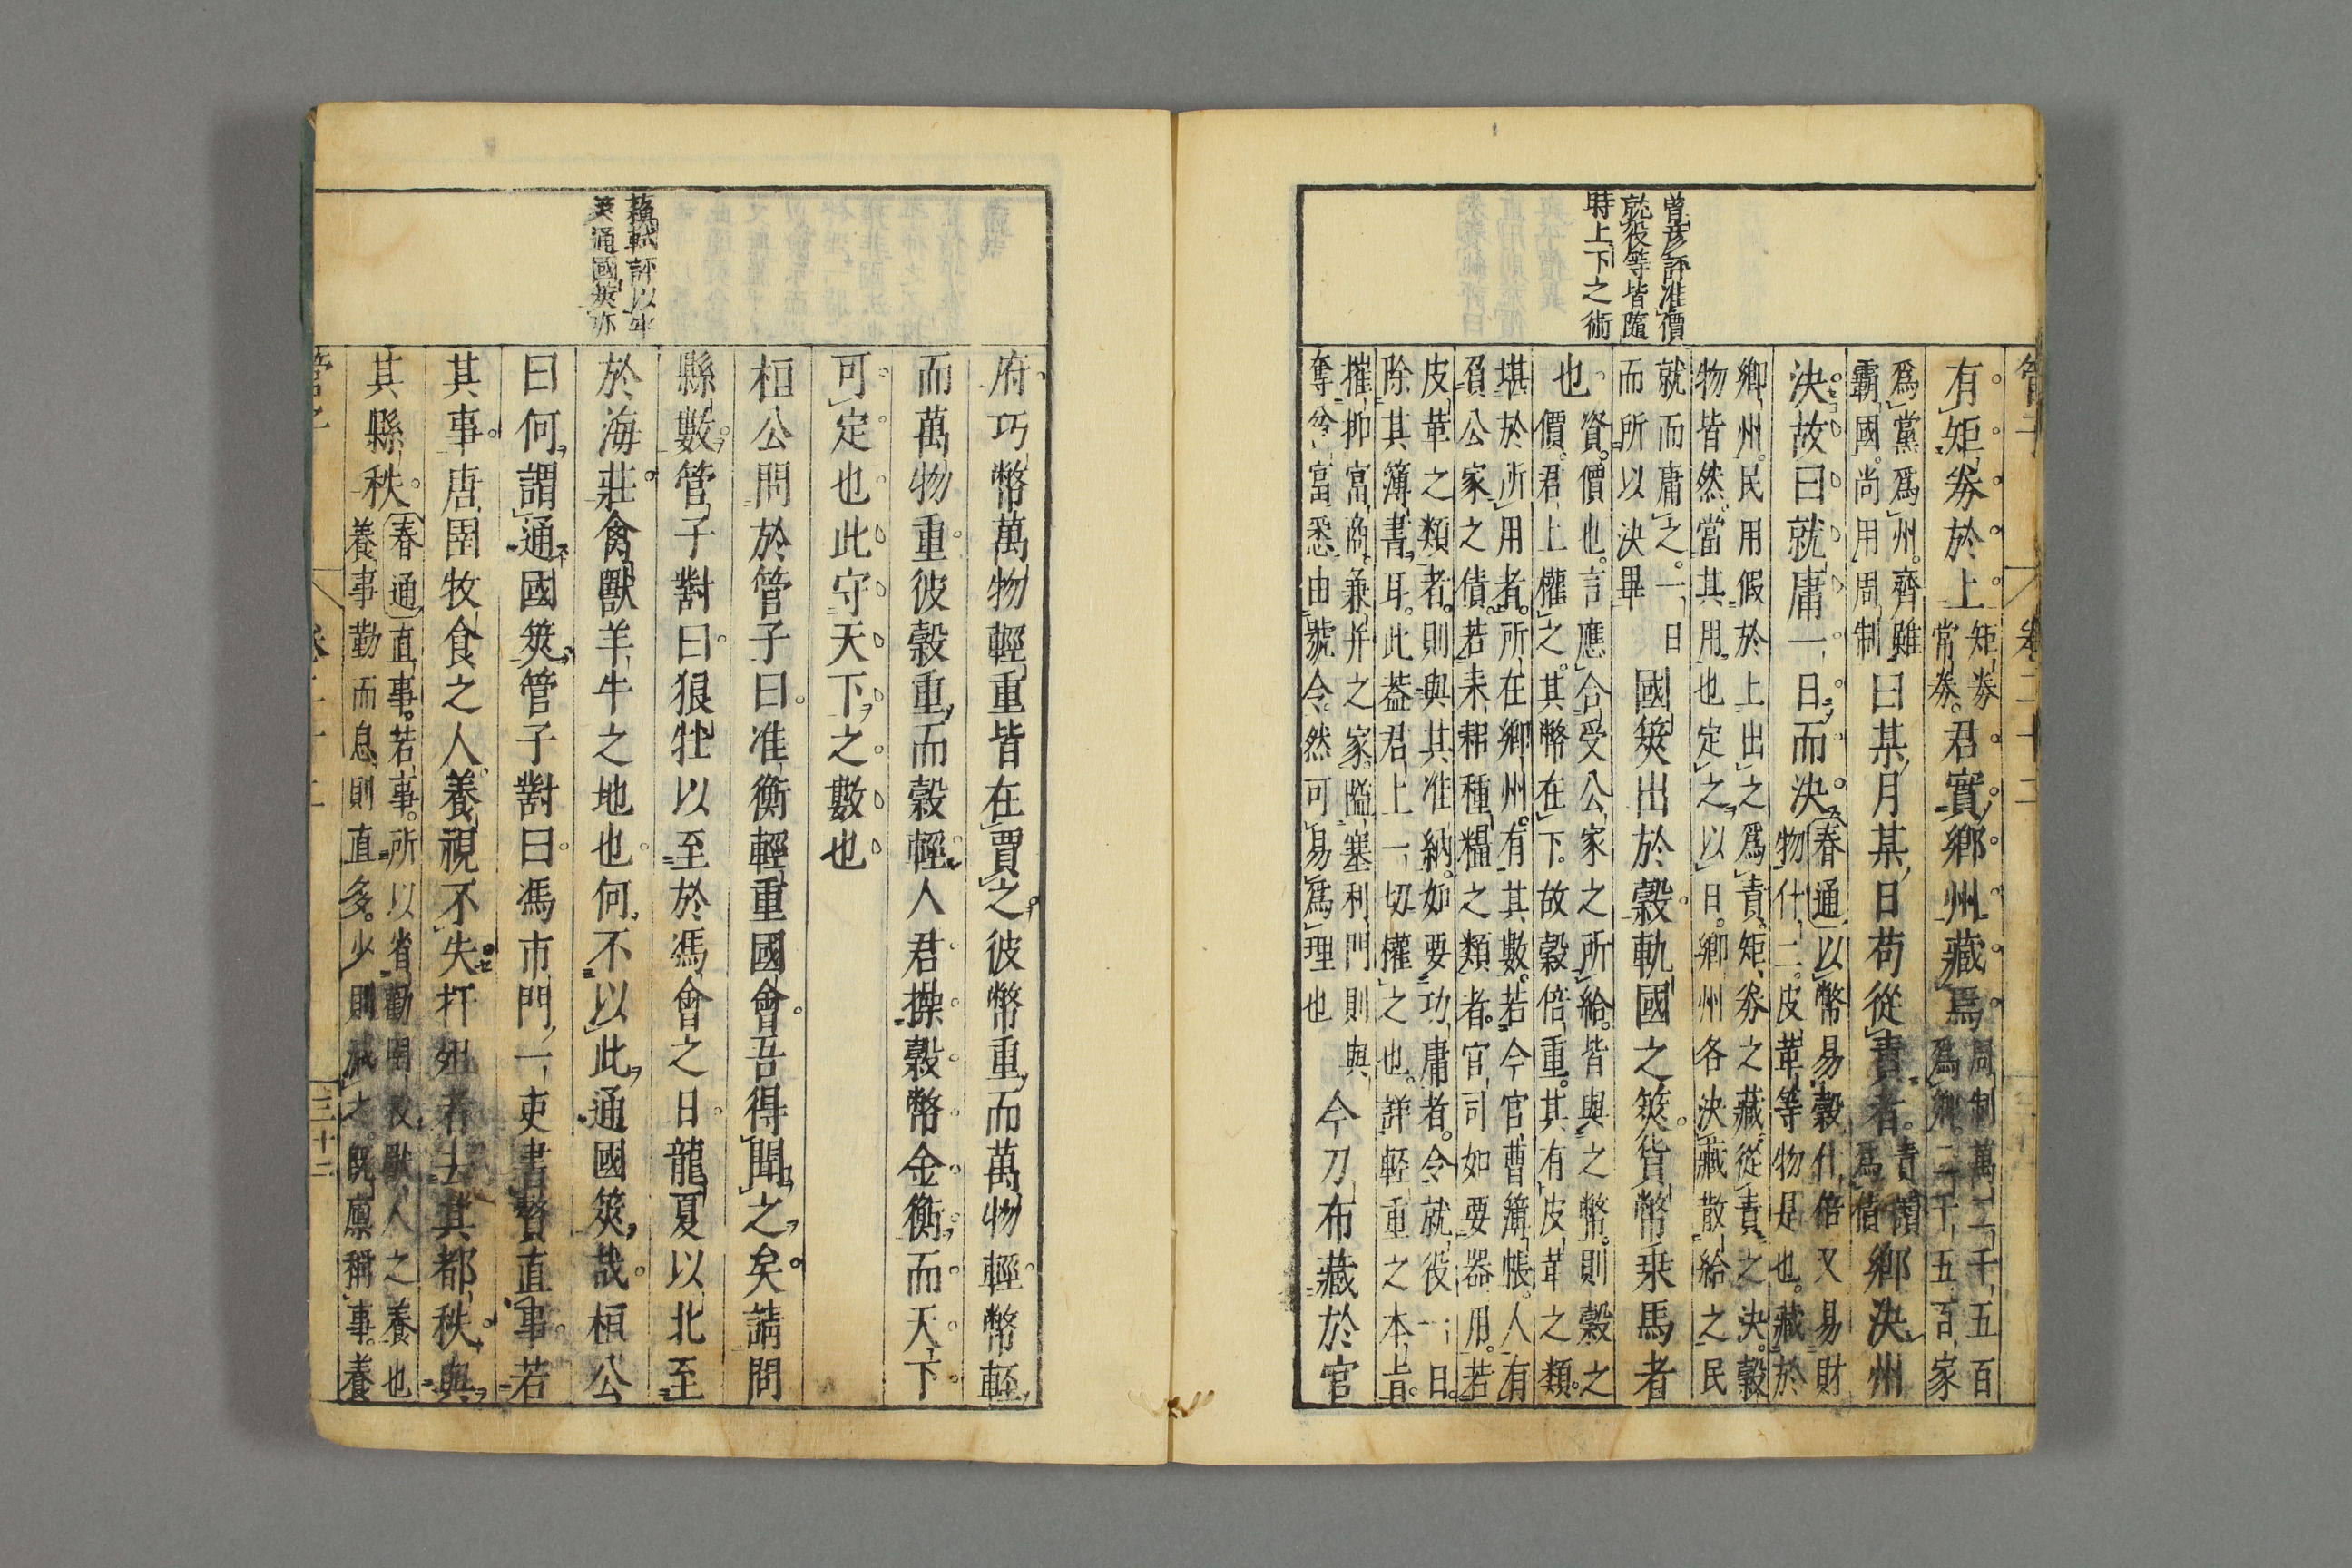 曾彦評准價
就役等皆隨
時上下之術
管子
卷二十二
有矩券於上
矩券
常券。
君實鄉州藏焉
周制萬二千五百
爲鄉。二千五百家
爲黨爲州。齊雖
霸國。尚用周制
曰某月某日苟從責者。
責讀
爲債
鄉決州
決故曰就庸一日而決
春通以幣易穀什倍又易財
物什二。皮革等物是也。藏於
鄉州。民用假於上出之爲責。矩券之藏從責之決。穀
物皆然。當其用也定之以日。鄉州各決藏散給之民
就而庸之。一日
而所以決畢
國筴出於穀軌國之筴貨幣乘馬者
也
資。價也。言應合受公家之所給。皆與之幣。則穀之
價。君上權之。其幣在下。故穀倍重。其有皮革之類。
堪於所用者。所在鄉州。有其數。若今官曹簿帳。人有
負公家之債。若耒耜種糧之類者。官司如要器用。若
皮革之類者。則與其准納。如要功庸者。令就役一日。
除其簿書耳。此蓋君上一切權之也。詳輕重之本旨。
摧抑富商兼并之家。隘塞利門則與
奪兮富悉由號令。然可易爲理也
今刀布藏於官
府巧幣萬物輕重皆在賈之彼幣重而萬物輕幣輕
而萬物重彼穀重而穀輕人君操穀幣金衡而天下
可定也此守天下之數也
桓公問於管子曰准衡輕重國會吾得聞之矣請問
縣數管子對曰狼牡以至於馮會之日龍夏以北至
於海莊禽獸羊牛之地也何不以此通國筴哉桓公
曰何謂通國筴管子對曰馮市門一吏書贅直事若
其事唐圉牧食之人養視不失扞殂者去其都秩與
其縣秩
春通直事。若事。所以省勸圉牧獸人之養也
養事勤而息則直多。少則減之。既廩稱事。養
蘇軾評以牛
筴通國筴亦
管子
卷二十二
三十二